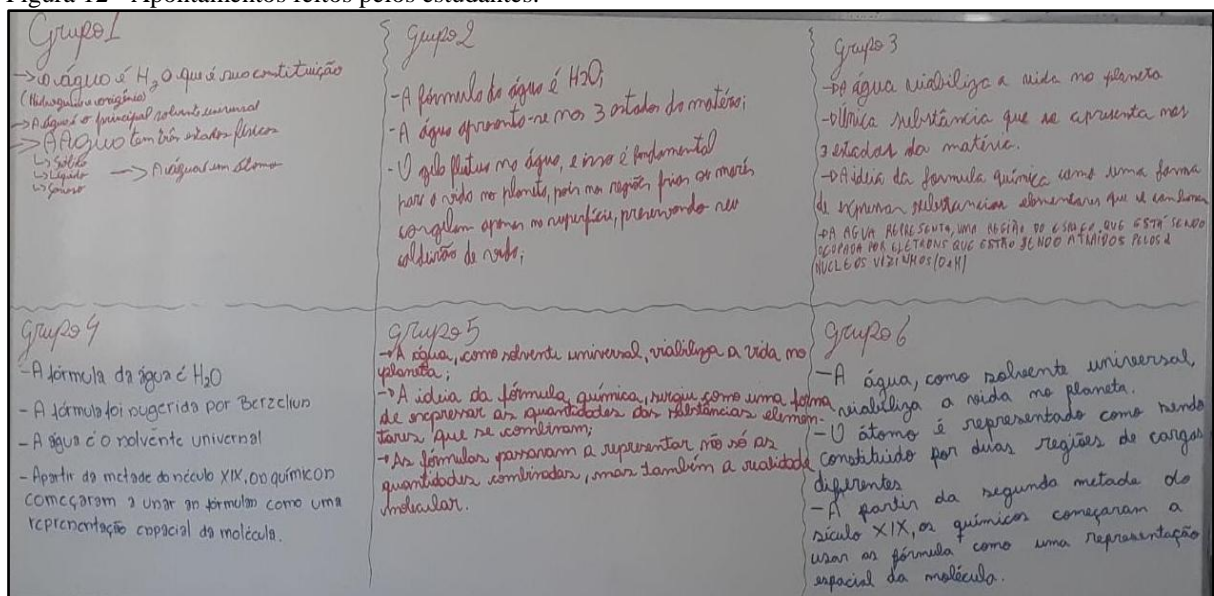 Figura 12 - Apontamentos feitos pelos estudantes.
Grupo 1
→ a água é H₂O que é sua constituição
(Hidrogênio e oxigênio)
→ A água é o principal solvente universal
→ A Água tem três estados físicos
↳ Sólido
↳ Líquido
↳ Gasoso
→ A água é um átomo
Grupo 2
- A fórmula da água é H2O;
- A água apresenta-se nos 3 estados da matéria;
- O gelo flutua na água, e isso é fundamental
para a vida no planeta, pois nas regiões frias os mares
congelam apenas na superfície, preservando seu
caldeirão de vida;
Grupo 3
→ A água viabiliza a vida no planeta
→ Única substância que se apresenta nos
3 estados da matéria.
→ A ideia da formula química como uma forma
de expressar substancias elementares que se combinam
→ A AGUA REPRESENTA, UMA REGIÃO DO ESPAÇO QUE ESTÁ SENDO
OCUPADA POR ELETRONS QUE ESTÃO SENDO ATRAÍDOS PELOS 2
NUCLEOS VIZINHOS (O e H)
Grupo 4
- A fórmula da água é H₂O
- A fórmula foi sugerida por Berzelius
- A água é o solvente universal
- Apartir da metade do século XIX, os químicos
começaram a usar as fórmulas como uma
representação espacial da molécula.
Grupo 5
→ A água, como solvente universal, viabiliza a vida no
planeta;
→ A ideia da fórmula química, surgiu como uma forma
de expressar as quantidades das substâncias elemen-
tares que se combinam;
→ As fórmulas passaram a representar não só as
quantidades combinadas, mas também a realidade
molecular.
Grupo 6
- A água, como solvente universal,
viabiliza a vida no planeta.
- O átomo é representado como sendo
constituído por duas regiões de cargas
diferentes
- A partir da segunda metade do
século XIX, os químicos começaram a
usar as fórmula como uma representação
espacial da molécula.